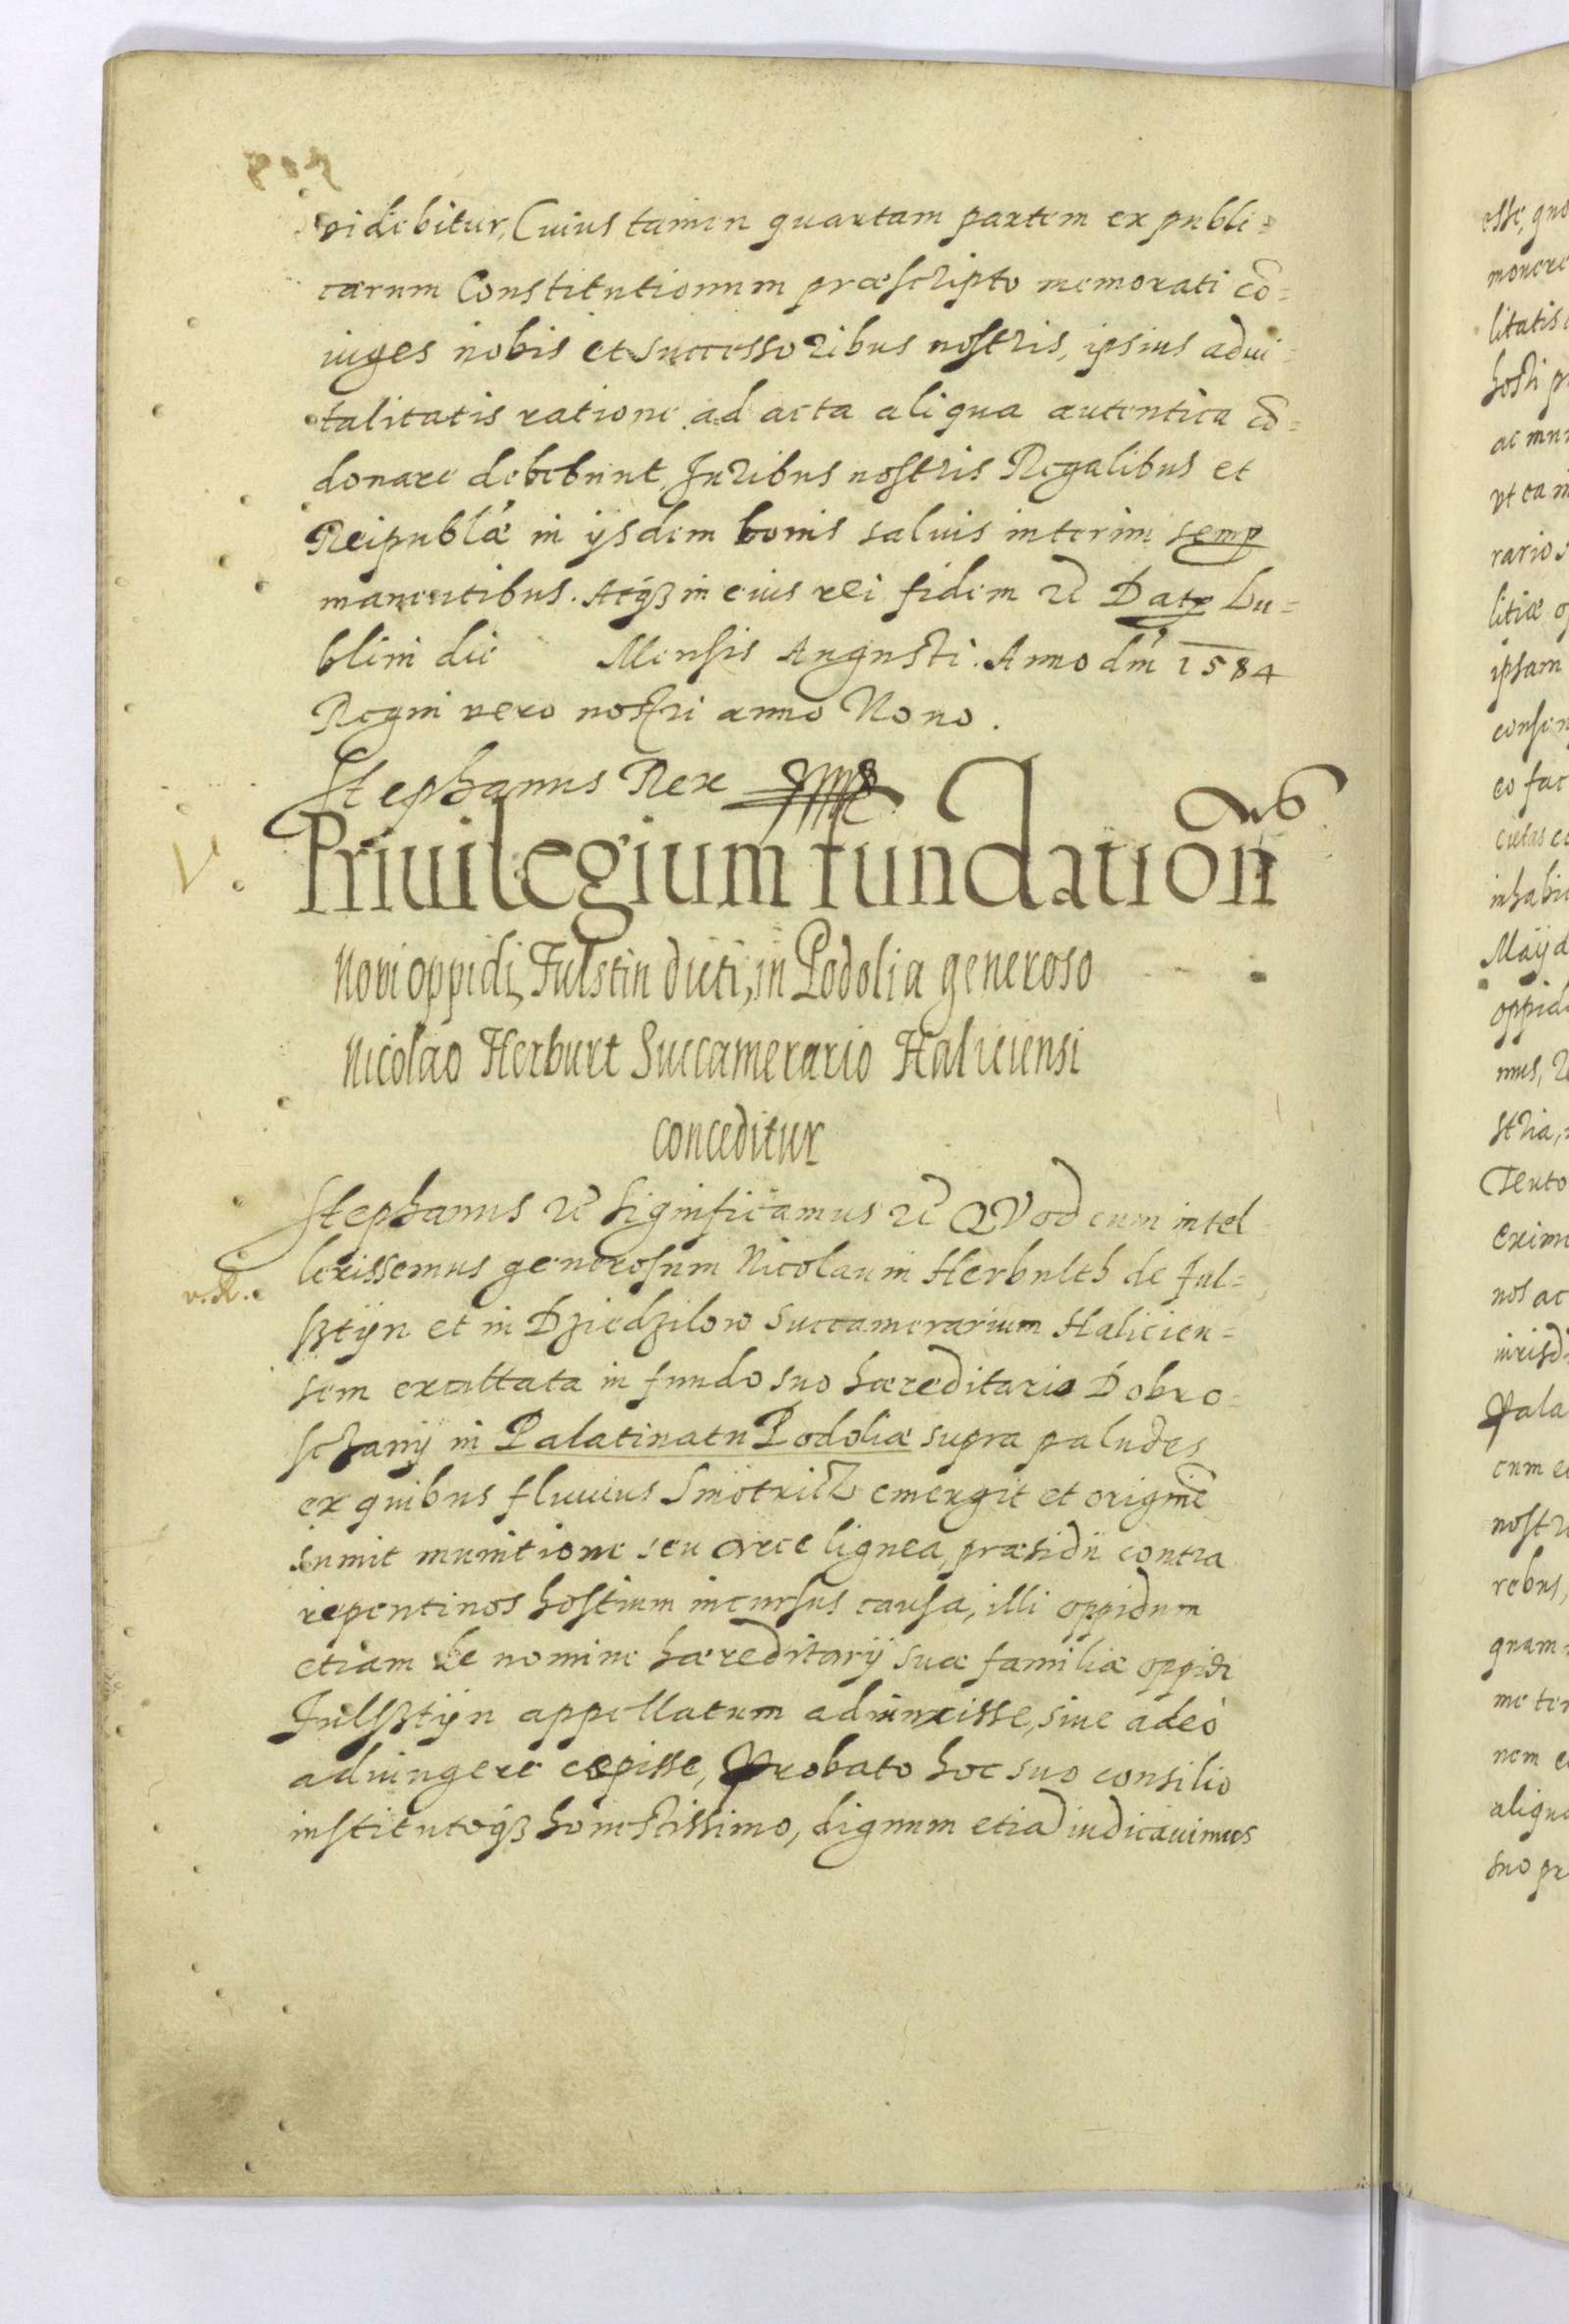 videbitur, Cuius tamen quartam partem ex publi=
carum Constitutionum præscripto memorati cō=
iuges nobis et successoribus nostris, ipsius advi=
talitatis ratione ad acta aliqua autentica cō=
donare debebunt, Juribus nostris Regalibus et
Reipublæ in ijsdem bonis salvis interim semp
manentibus. Atqȝ in eius rei fidem etc̃ Datꝭ Lu=
blini die Mensis Augusti. Anno dm̃ 1584
Regni vero nostri anno Nono.
Stephanus Rex
Priuilegium fundation
Novi oppidi, Fulstin dicti, in Podolia generoso
Nicolao Herburt Succamerario Haliciensi
conceditur
Stephanus etc̃ Significamus etc̃ QVod cum intel
lexissemus generosum Nicolaum Herbulth de Ful=
v.R.
sztijn et in Dziedzilow Succamerarium Halicien=
sem excittata in fundo suo hæreditario Dobro=
schany in Palatinatu Podoliæ supra paludes
ex quibus fluvius Smotricz emergit et originē
sumit munitione seu arce lignea, præsidii contra
repentinos hostium incursus causa, illi oppidum
etiam de nomine hæreditarij suæ familiæ oppidi
Fulsztijn appellatum adiunxisse, sive adeò
adiungere cœpisse, Probato hoc suo consilio
institutoqȝ honestissimo, dignum etiā iudicavimus